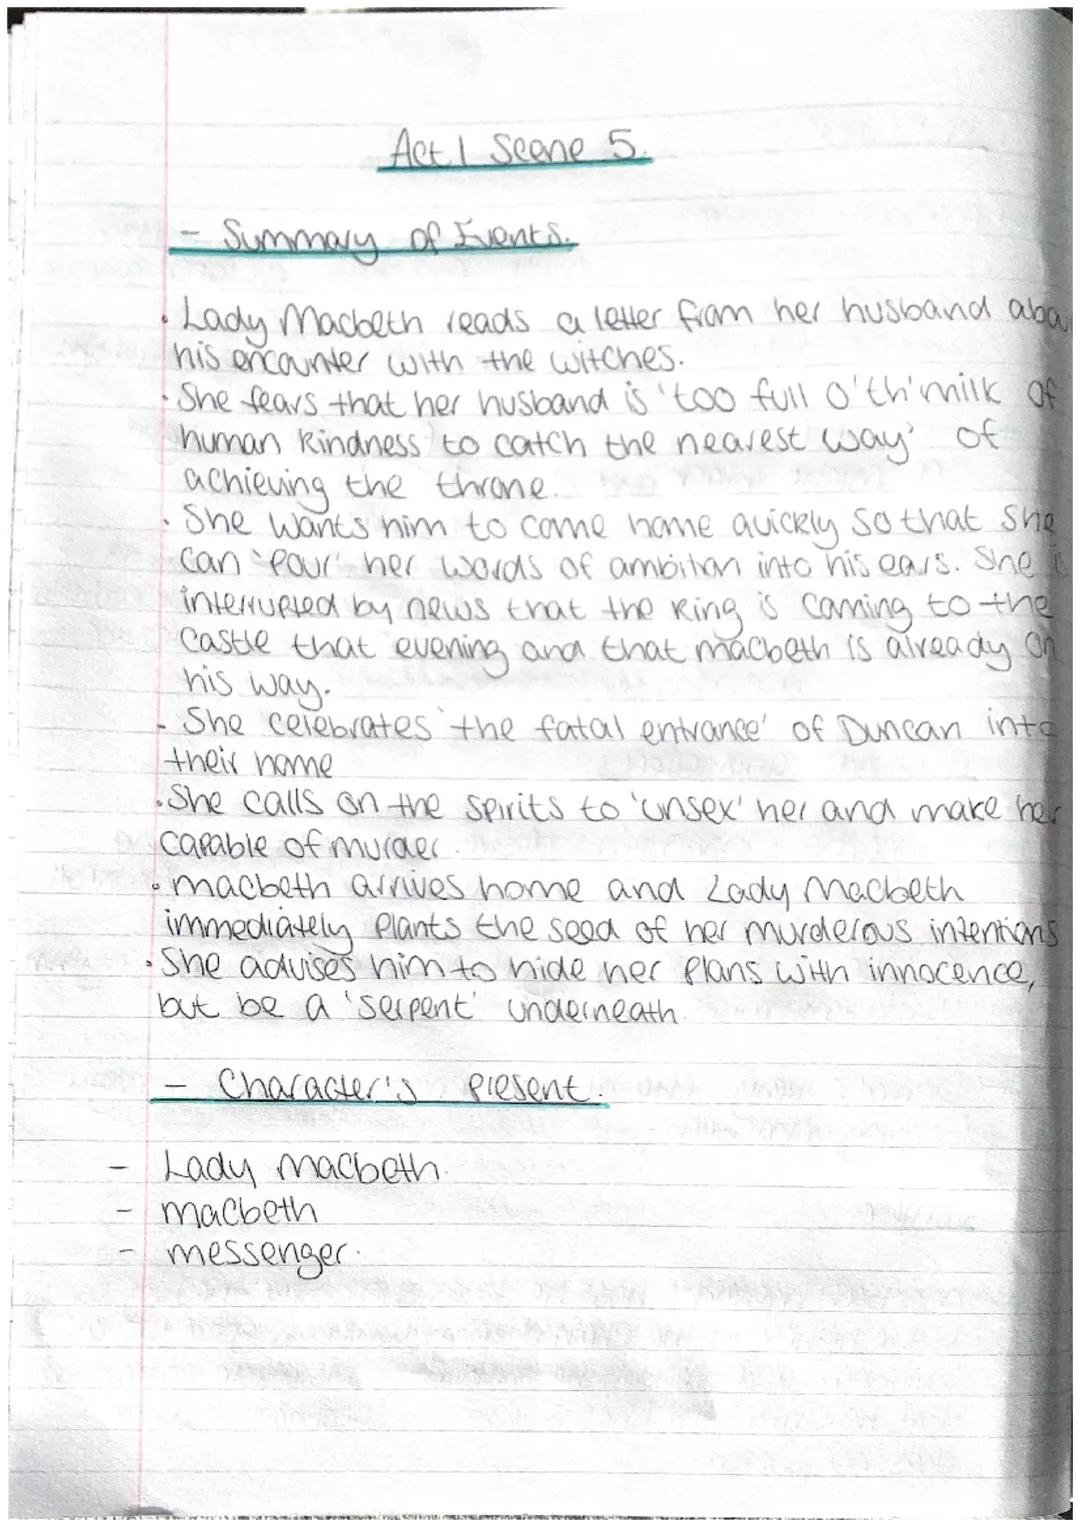 Act 1 Scene 5.
- Summary of Events.
• Lady Macbeth reads a letter from her husband abou
his encounter with the witches.
• She fears that her husband is 'too full o'th' milk of
human kindness to catch the nearest way' of
achieving the throne.
• She wants him to come home quickly so that she
can 'pour' her words of ambition into his ears. She is
interrupted by news that the king is coming to the
castle that evening and that macbeth is already on
his way.
• She celebrates 'the fatal entrance' of Duncan into
their home
• She calls on the spirits to 'unsex' her and make her
capable of murder.
• macbeth arrives home and Lady Macbeth
immediately plants the seed of her murderous intentions
• She advises him to hide her plans with innocence,
but be a 'serpent' underneath.
- Character's present.
- Lady Macbeth.
- macbeth
- messenger.